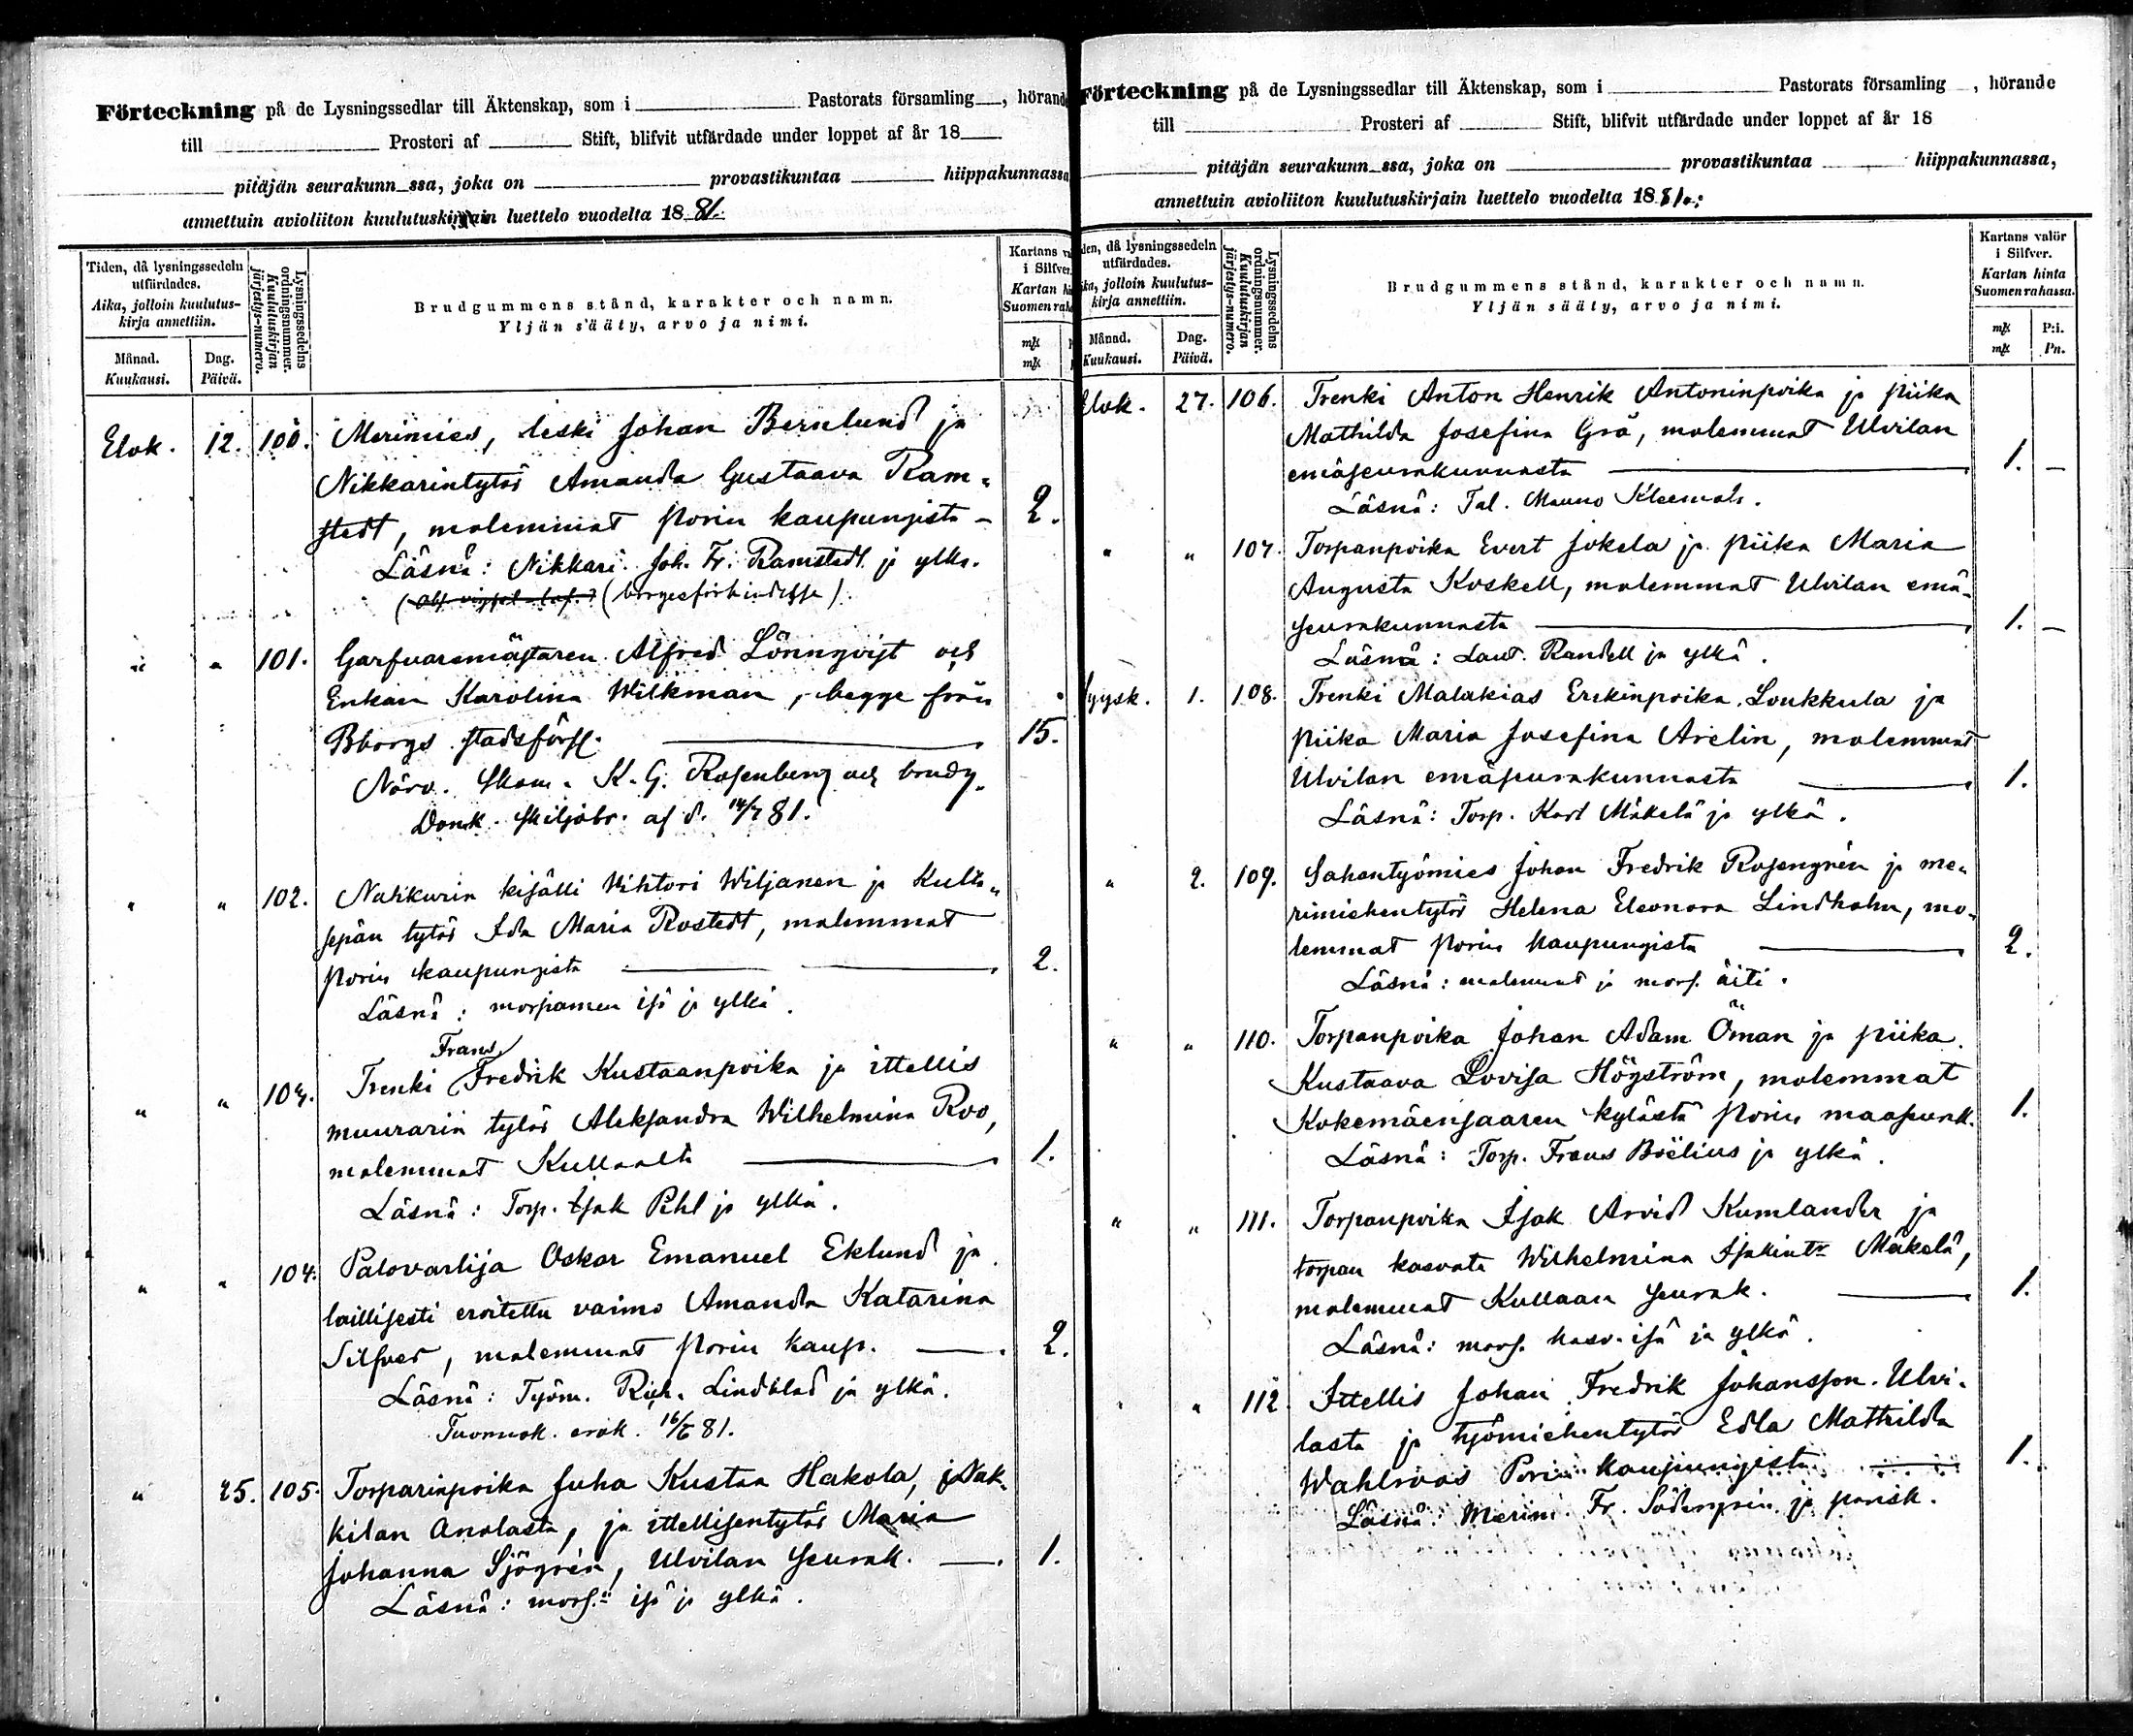 Förteckning på de Lysningssedlar till Äktenskap, som i Pastorats församling , hörande
till Prosteri af Stift, blifvit utfärdade under loppet af år 18
pitäjän seurakunn ssa, joka on provastikuntaa hiippakunnassa
annettuin avioliiton kuulutuskirjain luettelo vuodelta 1881.
Tiden, då lysningssedeln
utfärdades.
Aika, jolloin kuulutus-
kirja annettiin.
Månad.
Kuukausi.
Dag.
Päivä.
Lysningssedelns
ordningsnummer.
Kuulutuskirjan
järjestys-numero.
Brudgummens stånd, karakter och namn.
Yljän sääty, arvo ja nimi.
Kartans
i Silfver.
Kartan
Suomen
mk
mk
Elok. 12. 100. Merimies, leski Johan Bernlund ja
Nikkarintytär Amanda Gustaava Ram-
stedt, molemmat Porin kaupungista – 2.
Läsnä: Nikkari Joh. Fr. Ramstedt ja ylkä.
(borgesförbindelse)
" " 101. Garfvaremästaren Alfred Lönnqvist och
Enkan Karolina Wilkman, begge från
Bborgs stadsförs. 15.
Närv. Skom. K. G. Rosenberg och brudg.
Domk. skiljobr. af d. 14/7 81.
" " 102. Nahkurin kisälli Vihtori Wiljanen ja Kulta-
sepän tytär Ida Maria Rostedt, molemmat
Porin kaupungista 2.
Läsnä: morsiamen isä ja ylkä.
Frans
" " 103. Trenki Fredrik Kustaanpoika ja ittellis
muurarin tytär Aleksandra Wilhelmina Roo,
molemmat Kullaalta 1.
Läsnä: Torp. Isak Pihl ja ylkä.
" " 104. Palovartija Oskar Emanuel Eklund ja
laillisesti eroitettu vaimo Amanda Katarina
Silfver, molemmat Porin kaup. 2.
Läsnä: Työm. Rich. Lindblad ja ylkä.
Tuomiok. erok. 16/6 81.
" 25. 105. Torparinpoika Juha Kustaa Hakola, Nak-
kilan Anolasta, ja ittellisentytär Maria
Johanna Sjögrén, Ulvilan seurak. 1.
Läsnä: mors:n isä ja ylkä.
Förteckning på de Lysningssedlar till Äktenskap, som i Pastorats församling , hörande
till Prosteri af Stift, blifvit utfärdade under loppet af år 18
pitäjän seurakunn ssa, joka on provastikuntaa hiippakunnassa,
annettuin avioliiton kuulutuskirjain luettelo vuodelta 1881.
den, då lysningssedeln
utfärdades.
ika, jolloin kuulutus-
kirja annettiin.
Månad.
Kuukausi.
Dag.
Päivä.
Lysningssedelns
ordningsnummer.
Kuulutuskirjan
järjestys-numero.
Brudgummens stånd, karakter och namn.
Yljän sääty, arvo ja nimi.
Kartans valör
i Silfver.
Kartan hinta
Suomen rahassa.
mk P:i.
mk Pn.
Elok. 27. 106. Trenki Anton Henrik Antoninpoika ja piika
Mathilda Josefina Grå, molemmat Ulvilan
emäseurakunnasta 1. –
Läsnä: Tal. Mauno Kleemola.
" " 107. Torpanpoika Evert Jokela ja piika Maria
Augusta Koskell, molemmat Ulvilan emä-
seurakunnasta 1. –
Läsnä: Laut. Randell ja ylkä.
Syysk. 1. 108. Trenki Malakias Erikinpoika Loukkula ja
piika Maria Josefina Arelin, molemmat
Ulvilan emäseurakunnasta 1.
Läsnä: Torp. Karl Mäkelä ja ylkä.
" 2. 109. Sahantyömies Johan Fredrik Rosengrén ja me-
rimiehentytär Helena Eleonora Lindholm, mo-
lemmat Porin kaupungista 2.
Läsnä: molemmat ja mors. äiti.
" " 110. Torpanpoika Johan Adam Öman ja piika
Kustaava Lovisa Högström, molemmat
Kokemäensaaren kylästä Porin maaseurak. 1.
Läsnä: Torp. Frans Boëlius ja ylkä.
" " 111. Torpanpoika Isak Arvid Kumlander ja
torpan kasvatti Wilhelmina Isakintr Mäkelä,
molemmat Kullaan seurak. 1.
Läsnä: mors. kasv. isä ja ylkä.
" " 112. Ittellis Johan Fredrik Johansson Ulvi-
lasta ja työmiehentytär Edla Mathilda
Wahlroos Porin kaupungista 1.
Läsnä: Merim. Fr. Södergrén ja parisk.